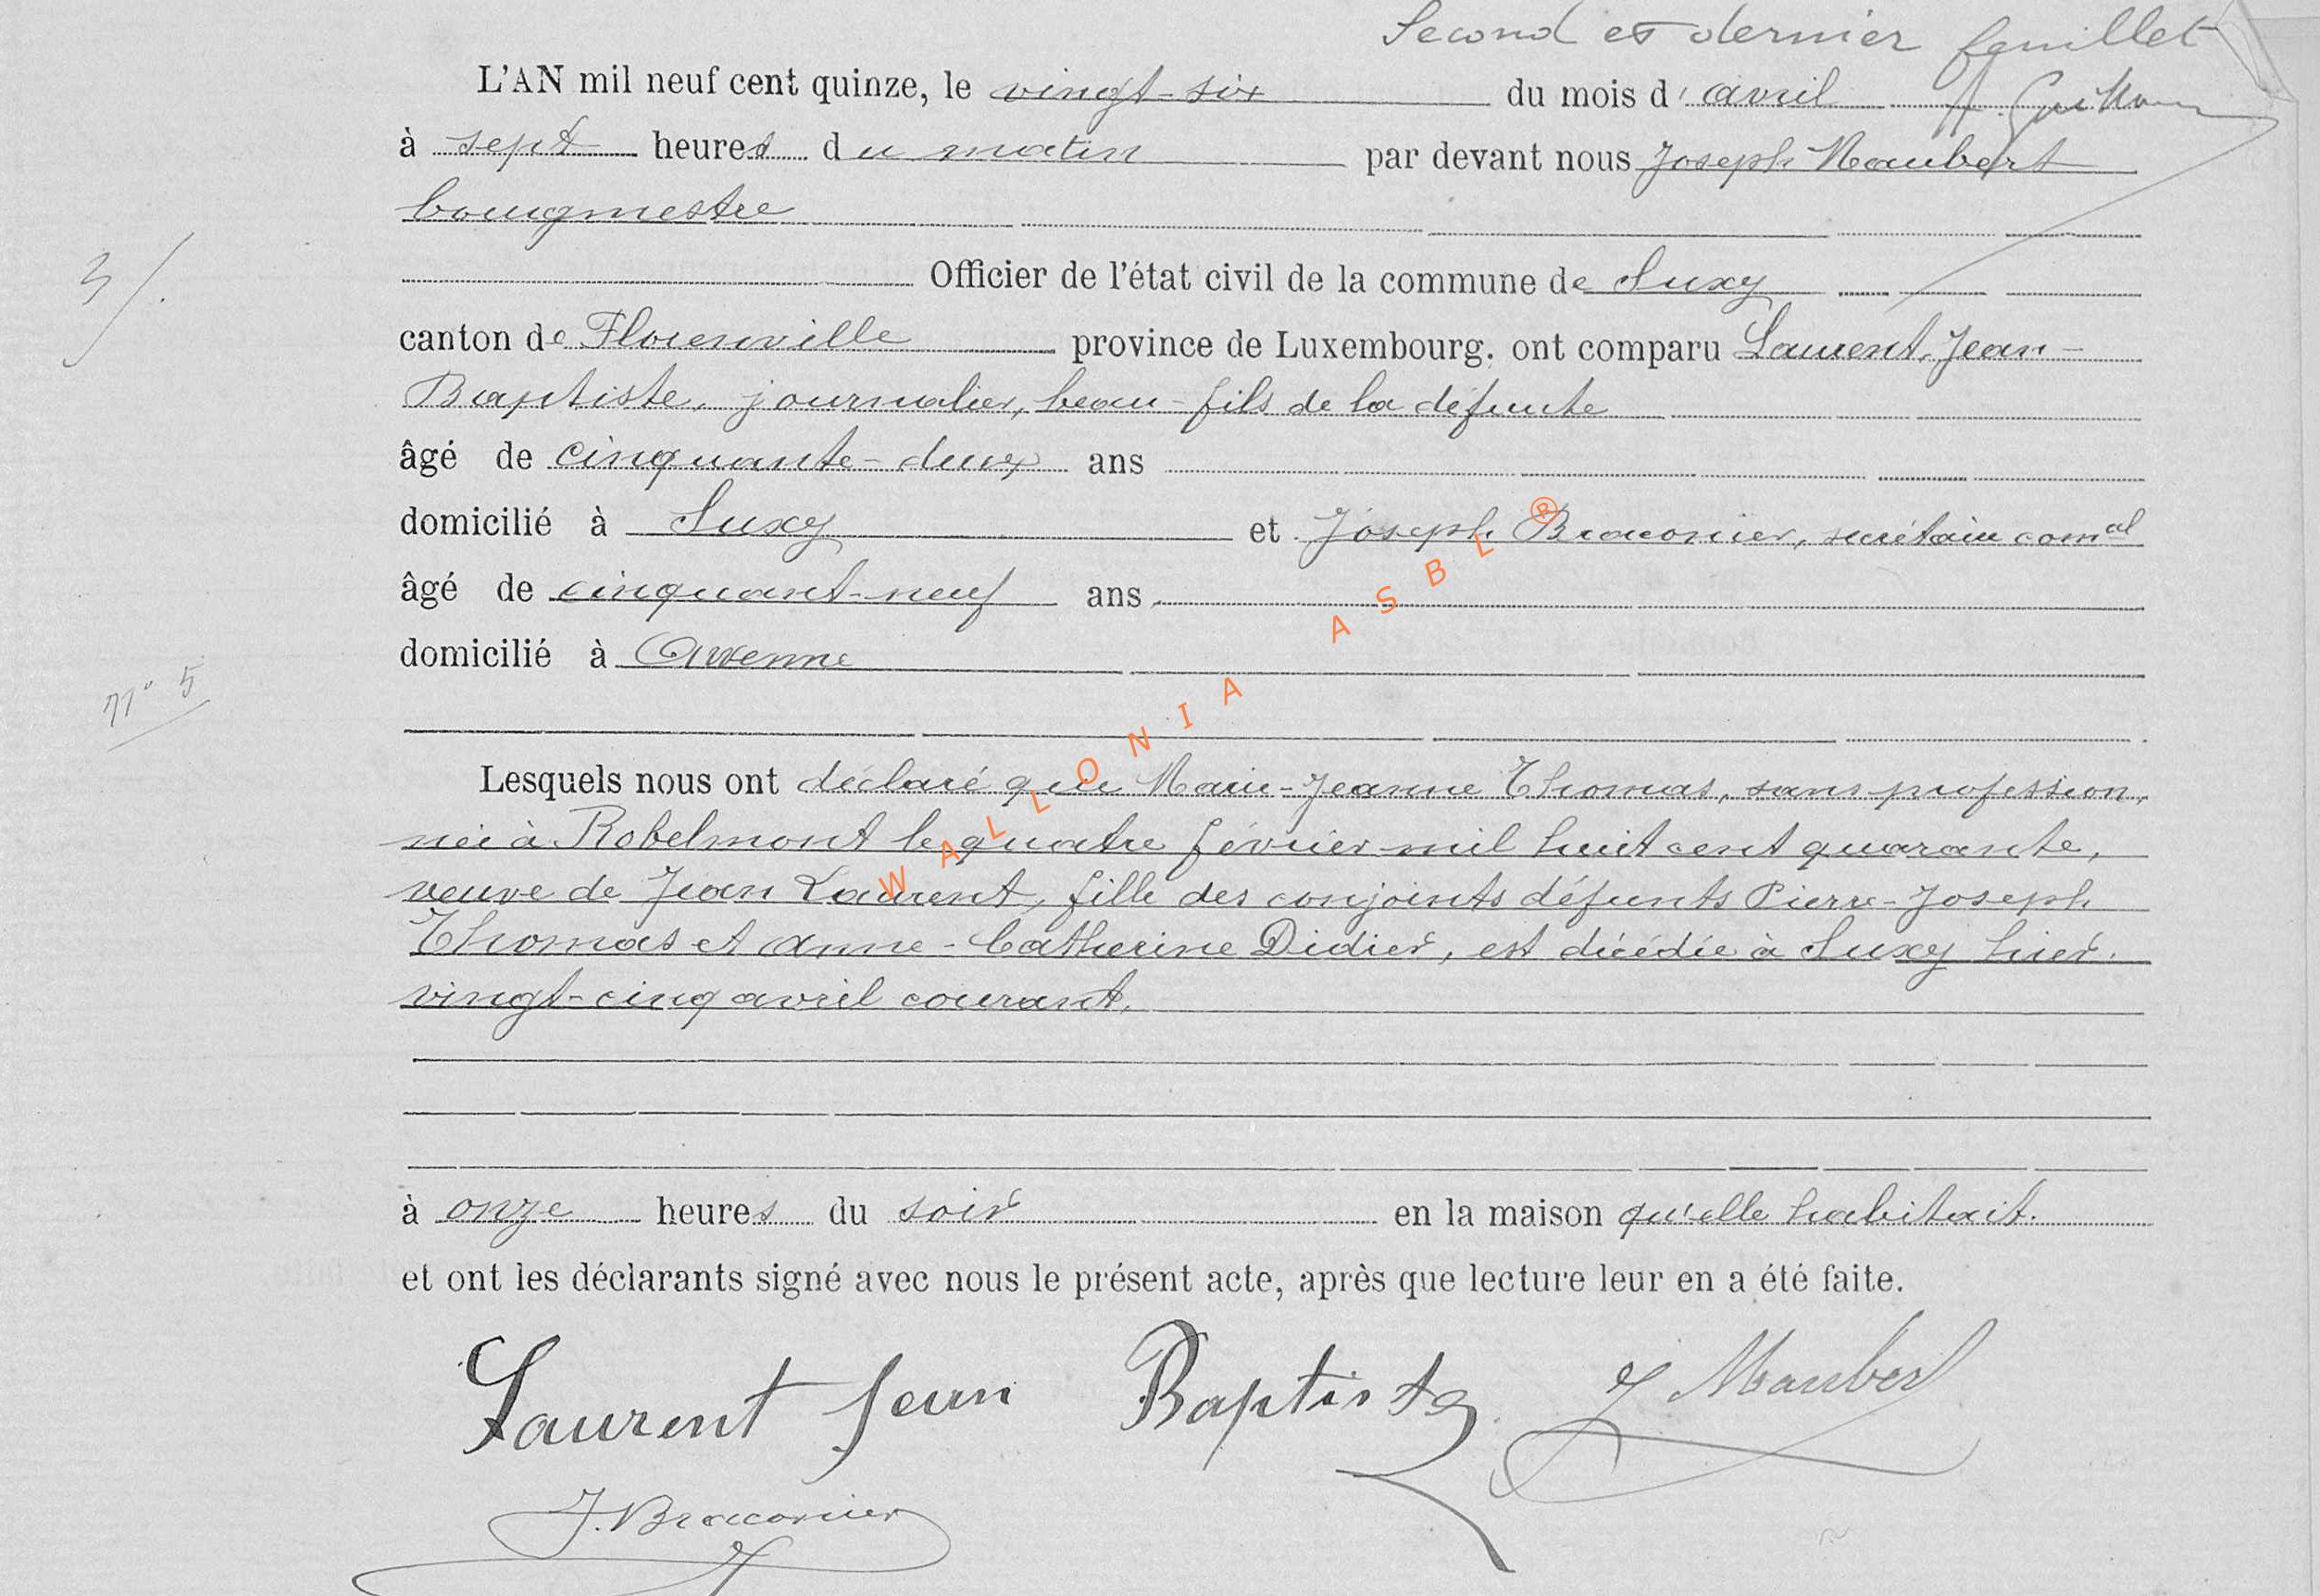 Second et dernier feuillet
L'AN mil neuf cent quinze, le vingt-six du mois d'avril
à sept heures du matin par devant nous Joseph Maubert
bourgmestre
3/.
Officier de l'état civil de la commune de Suxy
canton de Florenville province de Luxembourg. ont comparu Laurent, Jean-
Baptiste, journalier, beau-fils de la défunte
âgé de cinquante-deux ans
domicilié à Suxy et Joseph Braconier, secrétaire comal
âgé de cinquant-neuf ans
domicilié à
N° 5
Lesquels nous ont déclaré que Marie-Jeanne Thomas, sans profession,
née à Robelmont le quatre février mil huit cent quarante,
veuve de Jean Laurent, fille des conjoints défunts Pierre-Joseph
Thomas et Anne-Catherine Didier, est décédée à Suxy hier
vingt-cinq avril courant,
à onze heures du soir en la maison qu'elle habitait.
et ont les déclarants signé avec nous le présent acte, après que lecture leur en a été faite.
Laurent Jean Baptiste J Maubert
J. Braconier
WALLONIA ASBL ®